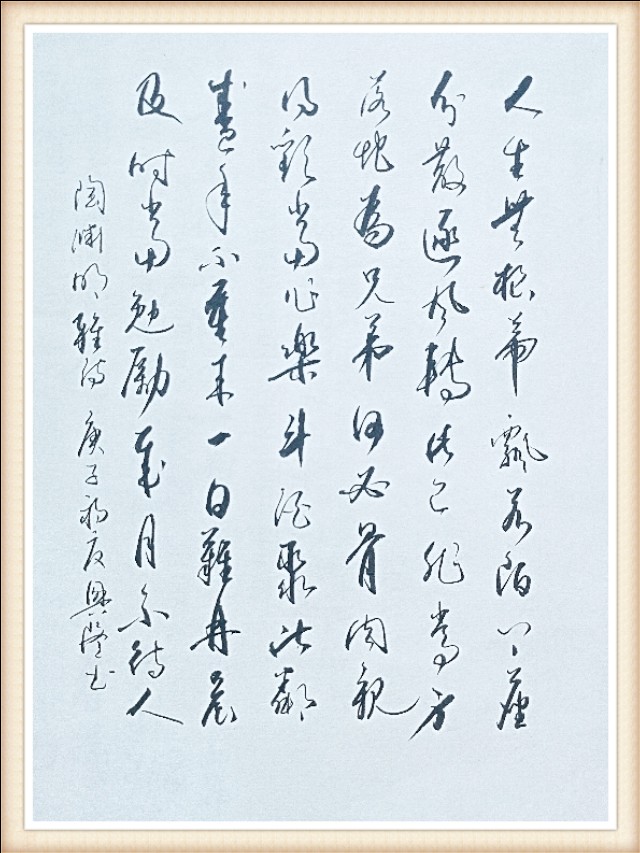 人生無根蒂飄若陌上塵
分散逐風轉此已非常身
落地為兄弟何必骨肉親
得歡當作樂斗酒聚比鄰
盛年不重來一日難再晨
及時當勉勵歲月不待人
陶淵明雜詩 庚子初夏興隆书